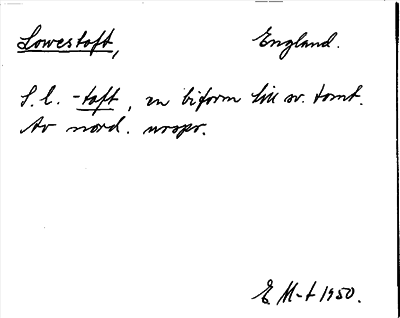 Lowestoft, England.
S.l. -toft, en biform till sv. tomt.
Av nord. urspr.
E M-t 1950.